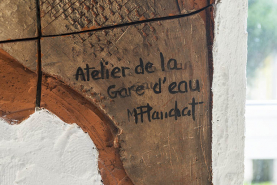 Atelier de la
Gare d'eau
M Flanchat